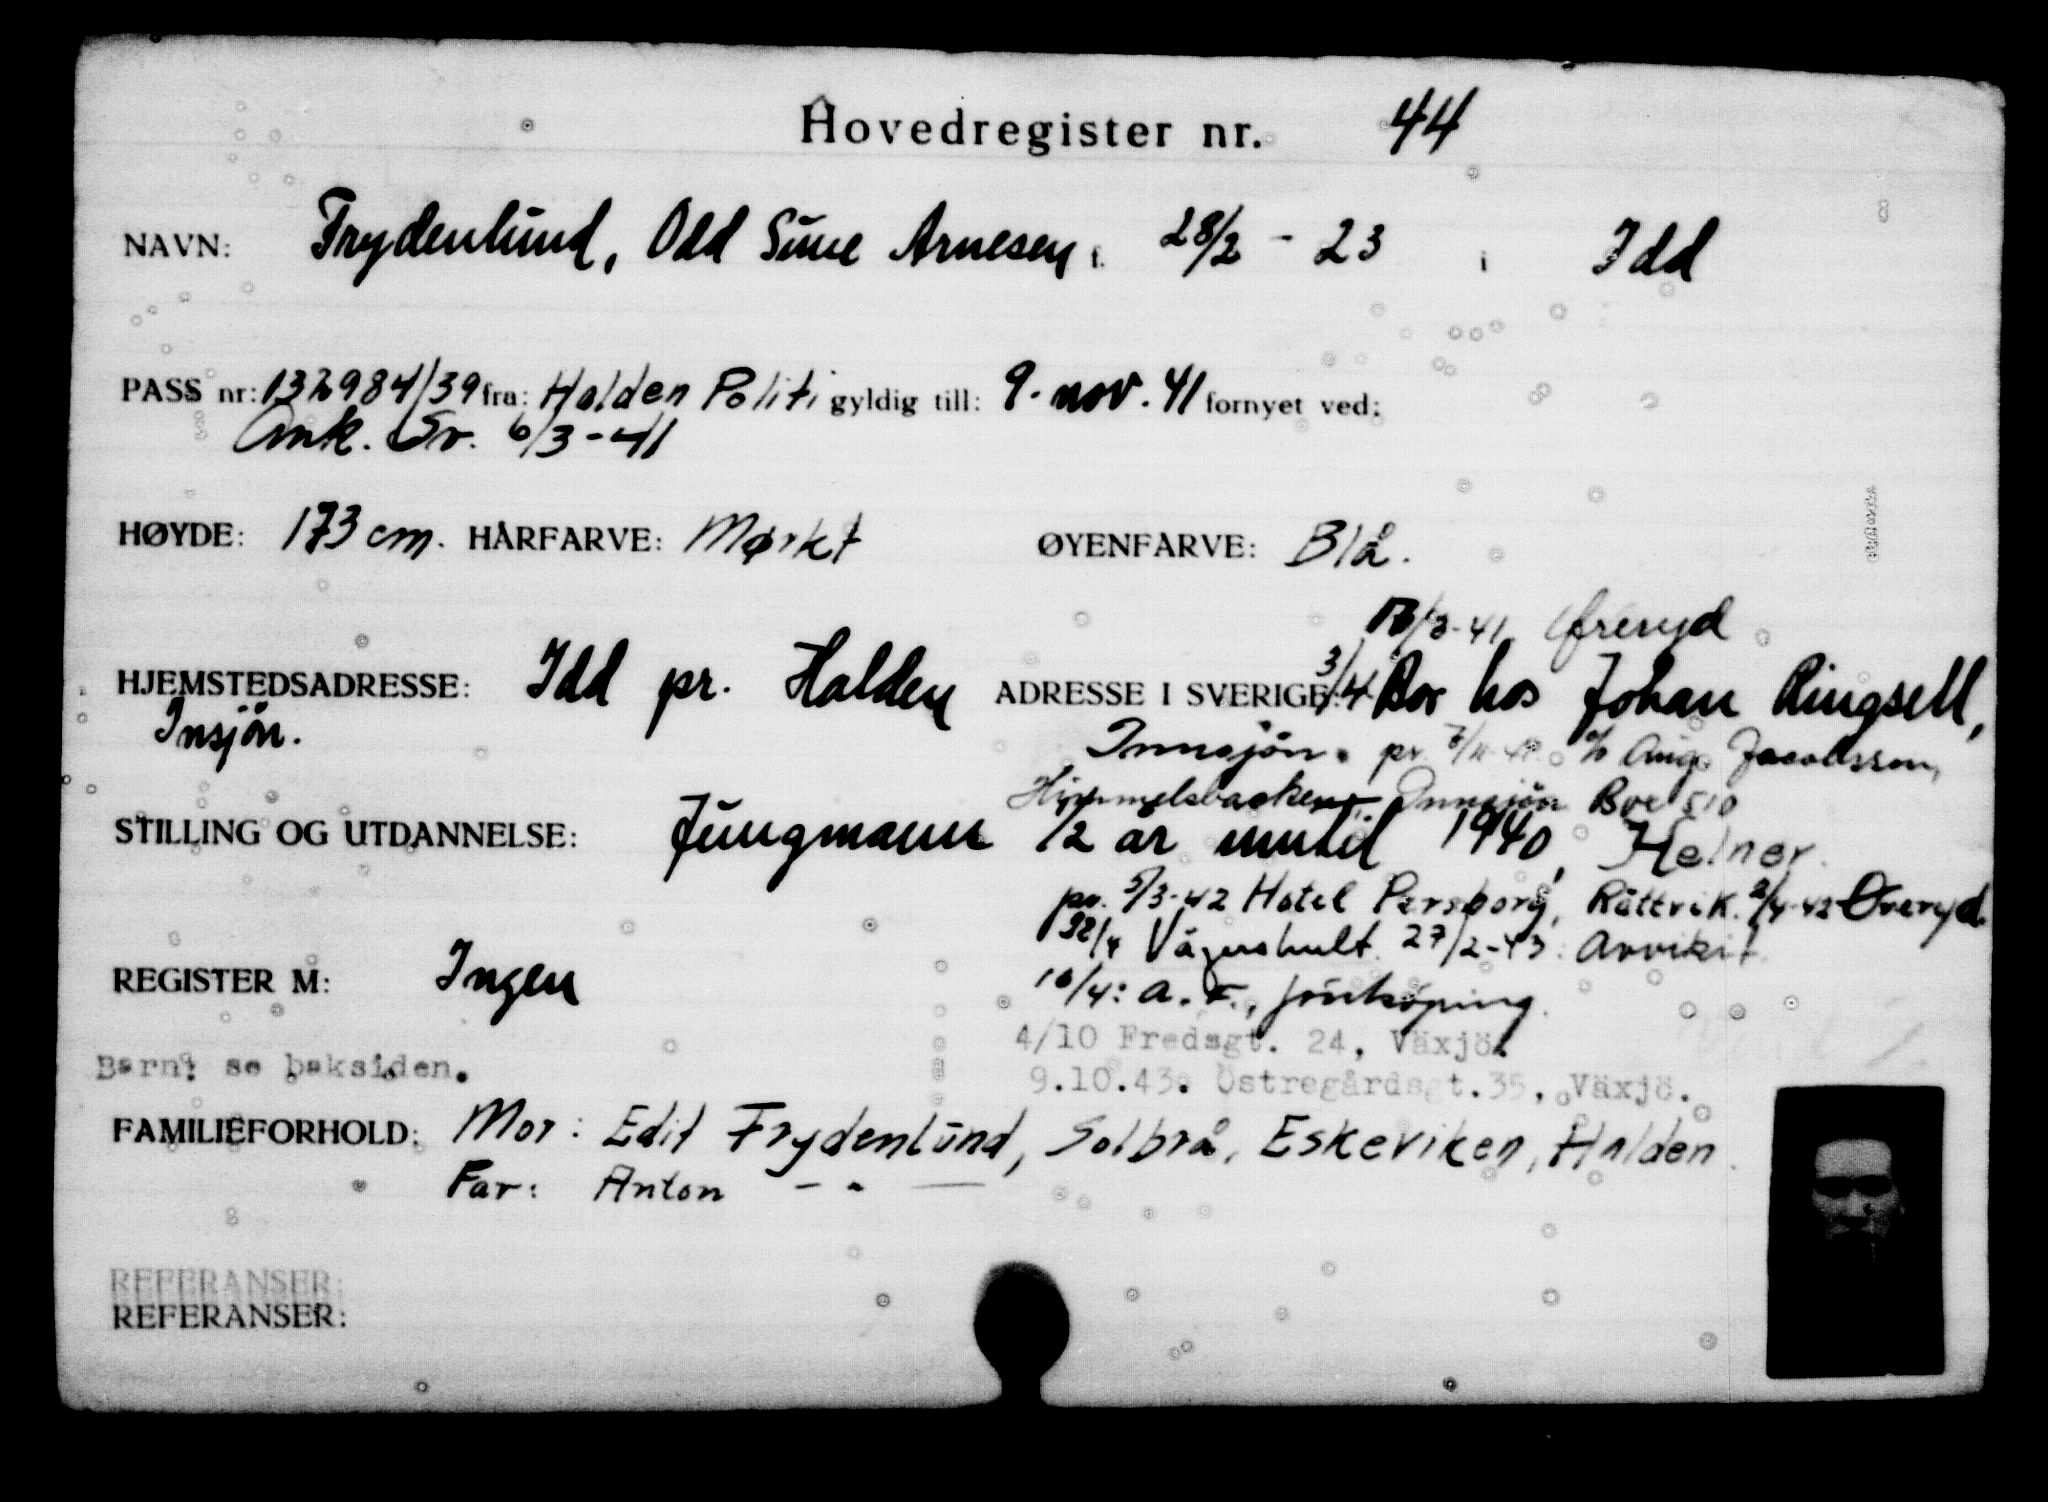 Hovedregister nr. 44
NAVN: Frydenlund, Odd Sune Arnesen f. 28/2 - 23 i Idd
PASS nr: 132984/39 fra: Halden Politi gyldig till: 9. nov. 41 fornyet ved:
Ank. Sv. 6/3-41
HØYDE: 173 cm. HÅRFARVE: Mørkt ØYENFARVE: Blå.
/3-41 Øreryd
HJEMSTEDSADRESSE: Idd pr. Halden ADRESSE I SVERIGE: 3/4 Bor hos Johan Ringsell,
Insjön.
Innsjön. pr. c/o Aug. Jacobsson,
Himmelsbacken, Innsjön Box 510
STILLING OG UTDANNELSE: Jungmann 1/2 år inntil 1940, Helner.
pr. 5/3-42 Hotel Persborg, Rättvik. 2/4-42 Øreryd.
/4 Vägershult. 27/2-43:
16/4: A.F., Jönköping.
REGISTER M: Ingen
4/10 Fredsgt. 24, Växjö.
Barn: se baksiden.
9.10.43. Östregårdsgt.35, Växjö.
FAMILIEFORHOLD: Mor: Edit Frydenlund, Solbrå, Eskeviken, Halden.
Far: Anton - " -
REFERANSER:
REFERANSER: